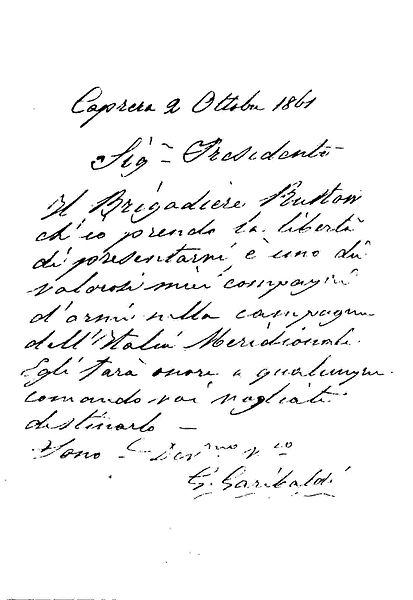 Caprera 2 Ottobre 1861
Sig.re Presidente
Il Brigadiere Ruston
ch'io prendo la libertà
di presentarvi è uno dei
valorosi miei compagni
d'armi nella campagna
dell'Italia Meridionale.
Egli farà onore a qualunque
comando voi vogliate
destinarlo –
Sono
G. Garibaldi